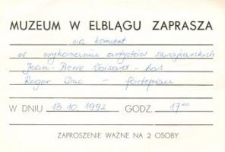 MUZEUM W ELBLĄGU ZAPRASZA
na koncert
w wykonaniu artystów szwajcarskich
Jean-Pierre
Roger - fortepian
W DNIU 13.10.1992 GODZ. 17⁰⁰
ZAPROSZENIE WAŻNE NA 2 OSOBY